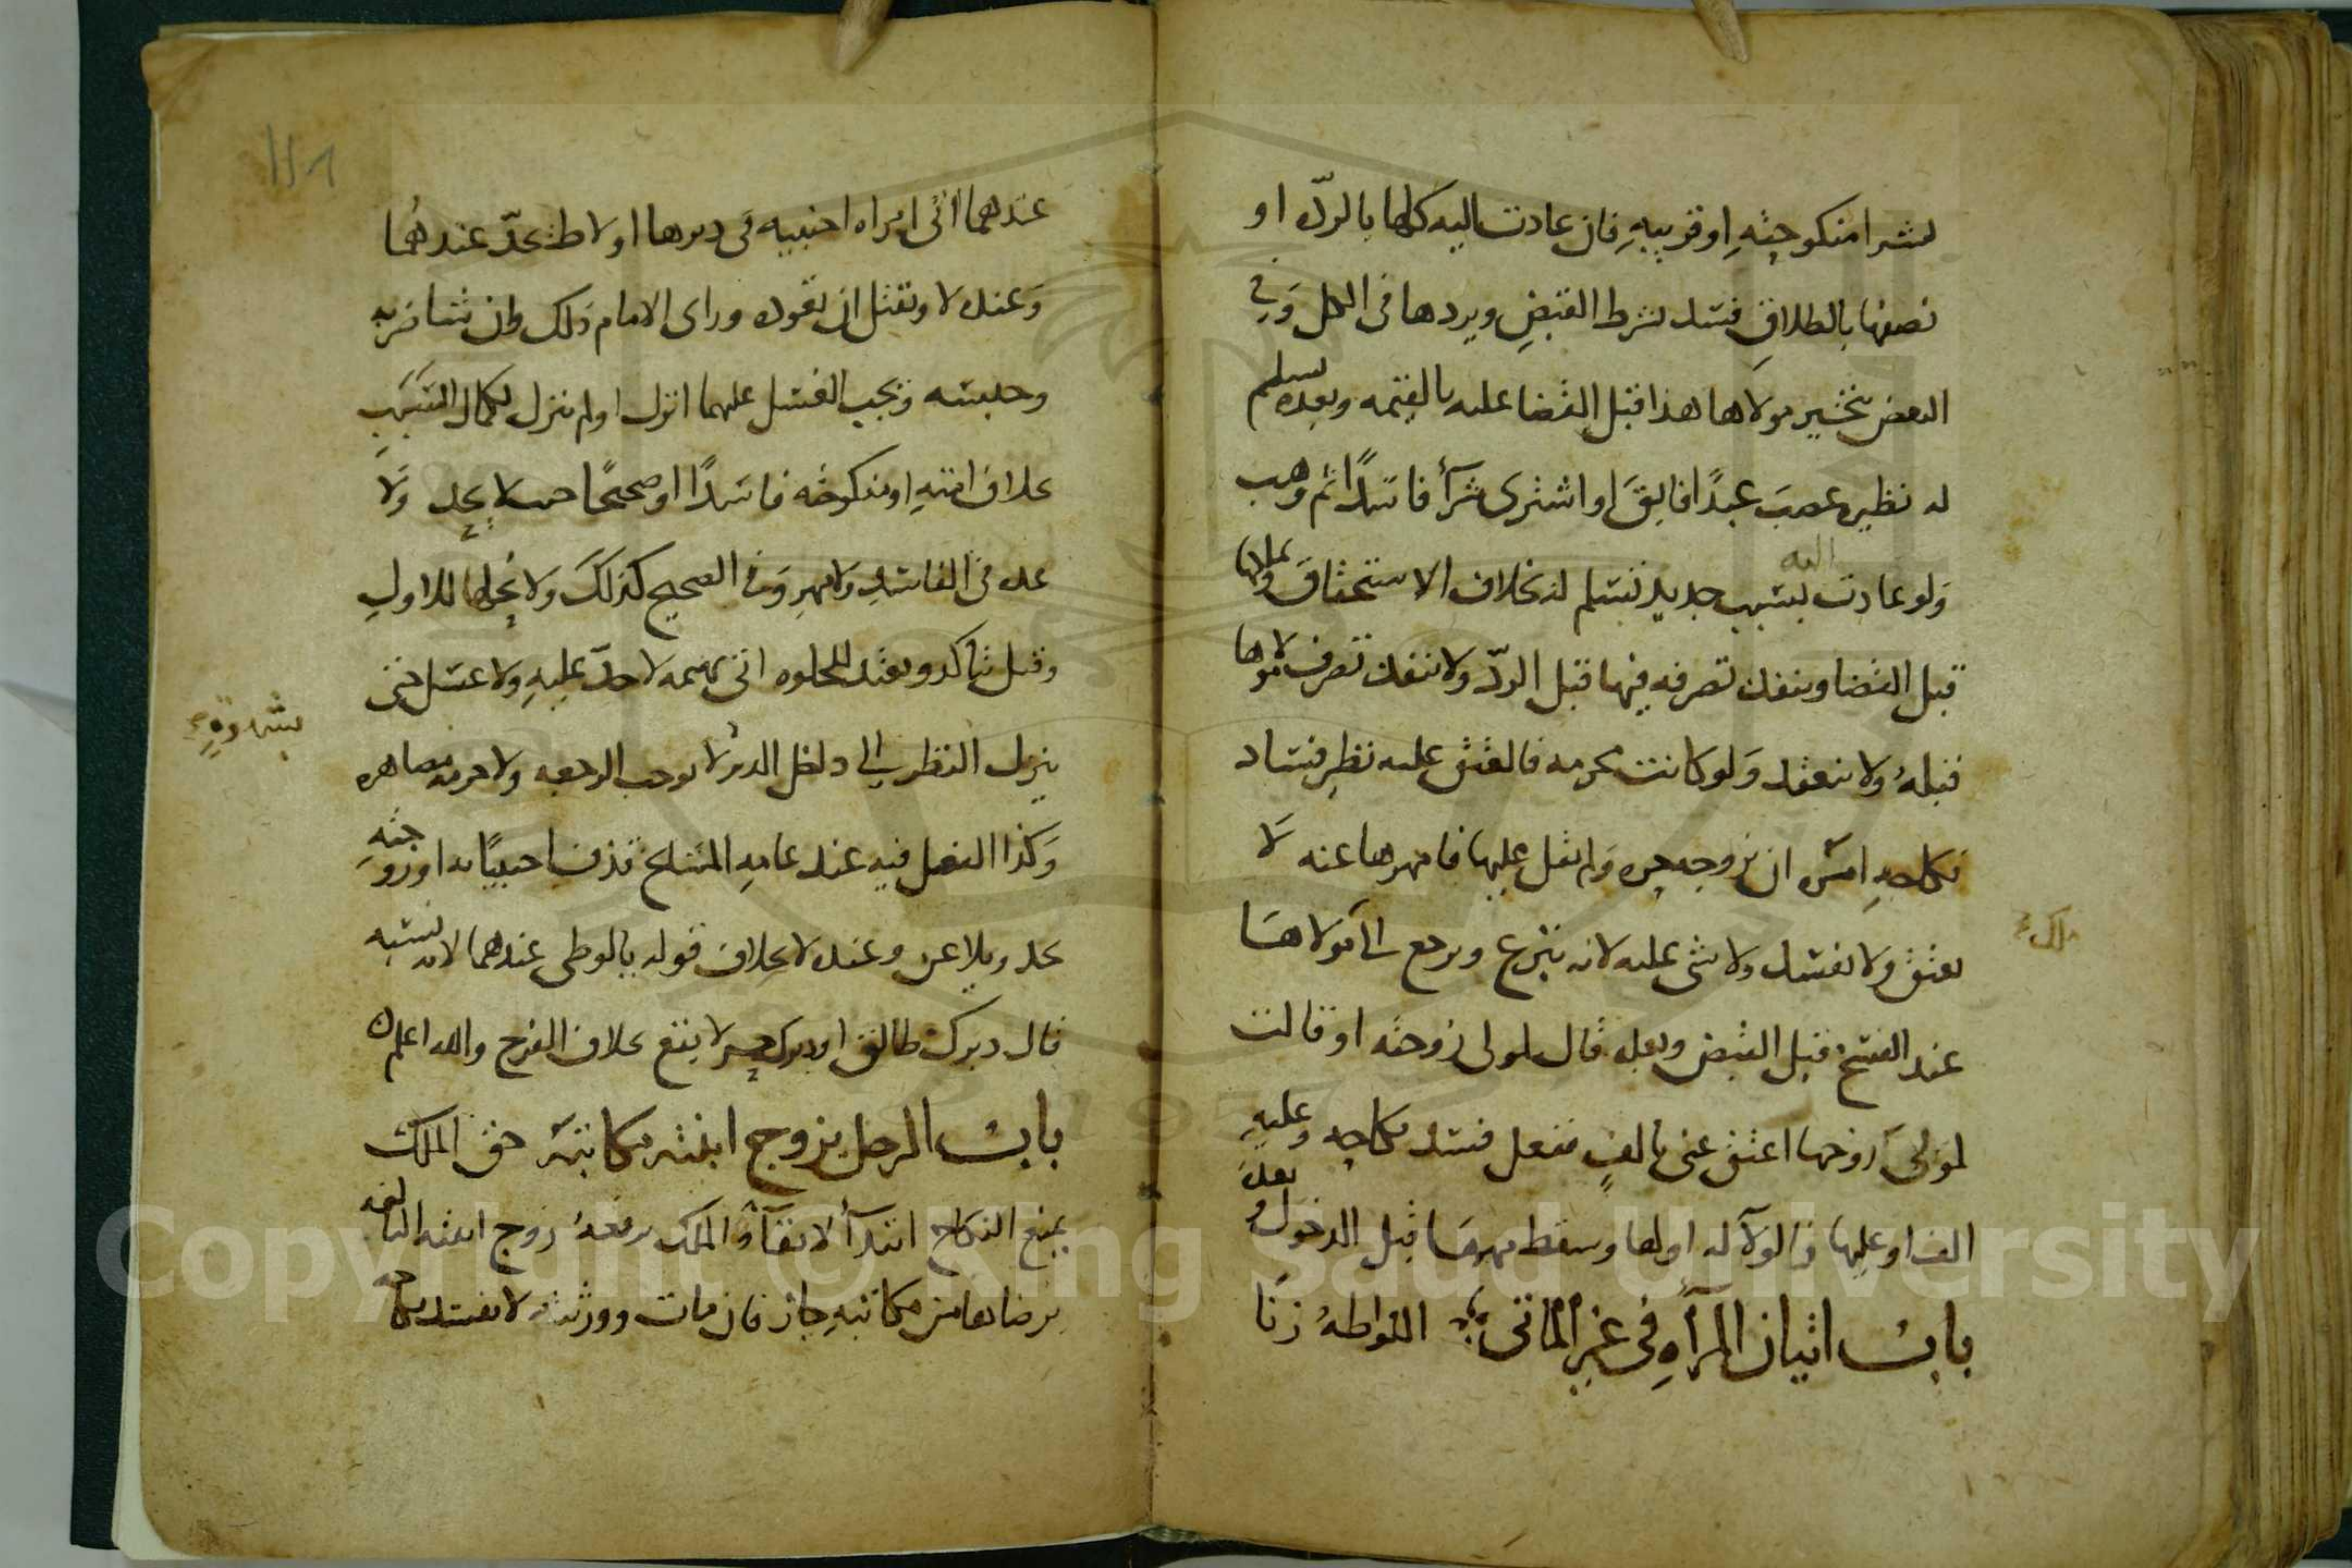 كشرا منكوحته او قريبه فان عادت اليه كلها بالردة او
نصفها بالطلاق فسد لشرط القبض ويردها في الكل وفي
البعض يتخير مولاها هذا قبل القضا عليه بالقيمه وبعده يسلم
له نظيره غصب عبدًا فابق او اشترى شرآ فاسدًا ثم وهب
ولو عادت اليه بسبب جديد تسلم له بخلاف الاستحقاق
قبل القضا وينفذ تصرفه فيها قبل الردّ ولا ينفذ تصرف مولاها
قبله ولا ينعقد ولو كانت محرمه فالعتق عليه نظير فساد
نكاحه امره ان يزوجه حره ولم يقل عليها فامهرها عنه لا
يعتق ولا يفسد ولا شى عليه لانه تبرع ويرجع الى مولاها
ملك
عند الفسخ قبل القبض وبعده قال لمولى زوجته او قالت
لمولى زوجها اعتق عنى بالف ففعل فسد نكاحه وعليه
الف او عليها والولآ له او لها وسقط مهرها قبل الدخول وبعده
باب اتيان المرأه في غير المأتى اللواطه زنًا
عندهما اتى امراه اجنبيه في دبرها او لاط يحدّ عندهما
وعنده لا ويقتل ان تعوده وراى الامام ذلك وان شا ضربه
وحبسه ويجب الغسل عليهما انزل او لم ينزل لكمال السبب
بخلاف امته او منكوحته فاسدًا او صحيحًا حيث لا يحد ولا
عده في الفاسد ولا مهر وفي الصحيح كذلك ولا يحلها للاول
وقيل تتأكد وبعد الخلوه اتى بهيمه لا حدّ عليه ولا غسل حتى
ينزل النظر الى داخل الدبر لا يوجب الرجعه ولا حرمه مصاهره
بشهوة
وكذا الفعل فيه عند عامه المشايخ قذف اجنبيًا به او زوجته
يحد ويلاعن وعنده لا بخلاف قوله بالوطى عندهما لانه نسبه
قال دبرك طالق او دبرك حر لا يقع بخلاف الفرج والله اعلم
باب الرجل يزوج ابنته مكاتبه حق الملك
يمنع النكاح ابتدآ لا بقآ والملك يرفعه زوج ابنته البالغه
برضاها من مكاتبه جاز فان مات وورثته لا يفسد نكاحه